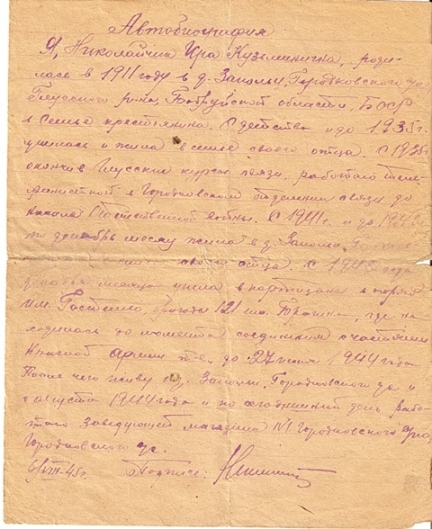 Автобиография
Я, Николайчик Ира Кузьминична, роди-
лась в 1911 году в д. Заполье, Городковского
Глусского р-на, Бобруйской области, БССР
в семье крестьянина. С детства и до 1935 г.
училась и жила в семье своего отца. С 1935
окончив Глусские курсы связи, работаю теле-
фонисткой в Городковском отделении связи до
начала войны. С 1941 г. и до
по декабрь месяц жила в д. Заполье,
своего отца. С 1943 года
декабря месяца ушла в партизаны в
им. Гастелло, бригады 121 им. Брагина, где на-
ходилась до момента соединения с частями
Красной Армии т.е. до 27 июня 1944 года
После чего живу в д. Заполье, Городковского и
с августа 1944 года и по сегодняшний день рабо-
таю заведующей магазина №1 Городковского
Городковского
6/VIII-45 г. Подпись: